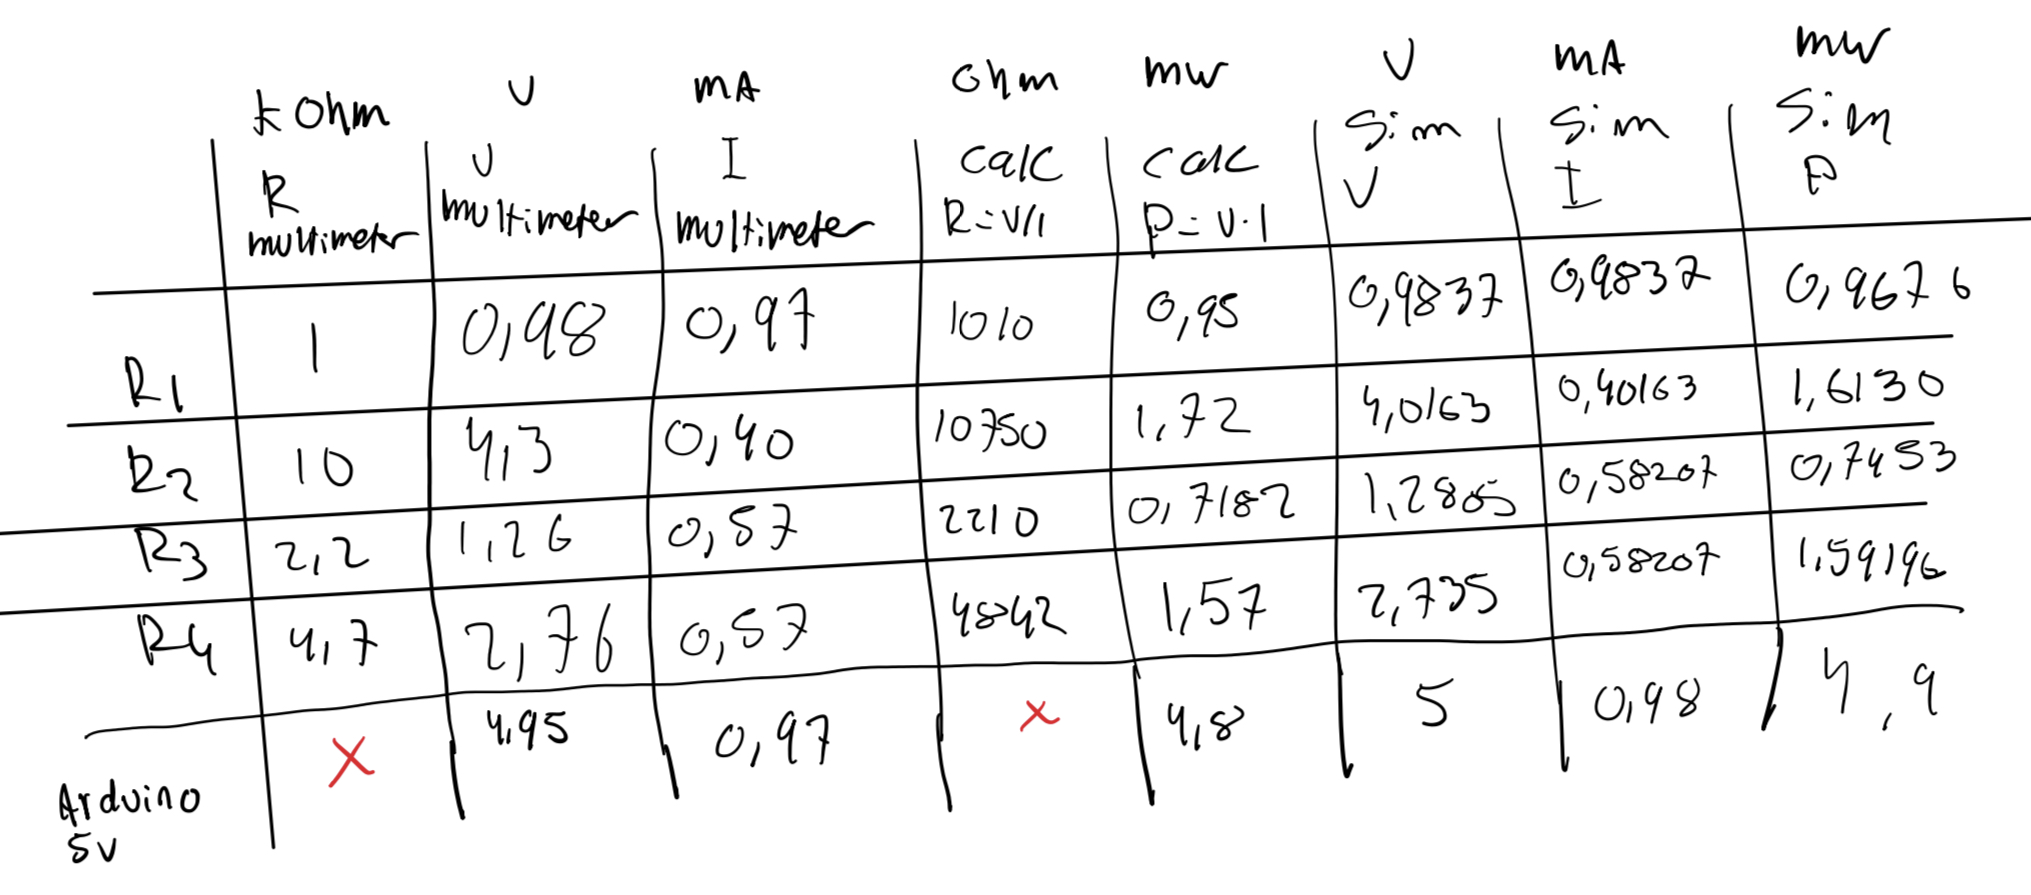 k Ohm V mA Ohm mW V mA mW
R multimeter U multimeter I multimeter Calc R=V/I Calc P=V·I Sim V Sim I Sim P
R1 1 0,98 0,97 1010 0,95 0,9837 0,9837 0,9676
R2 10 4,3 0,40 10750 1,72 4,0163 0,40163 1,6130
R3 2,2 1,26 0,57 2210 0,7182 1,2805 0,58207 0,7453
R4 4,7 2,76 0,57 4842 1,57 2,735 0,58207 1,59196
Arduino 5V x 4,95 0,97 x 4,8 5 0,98 4,9